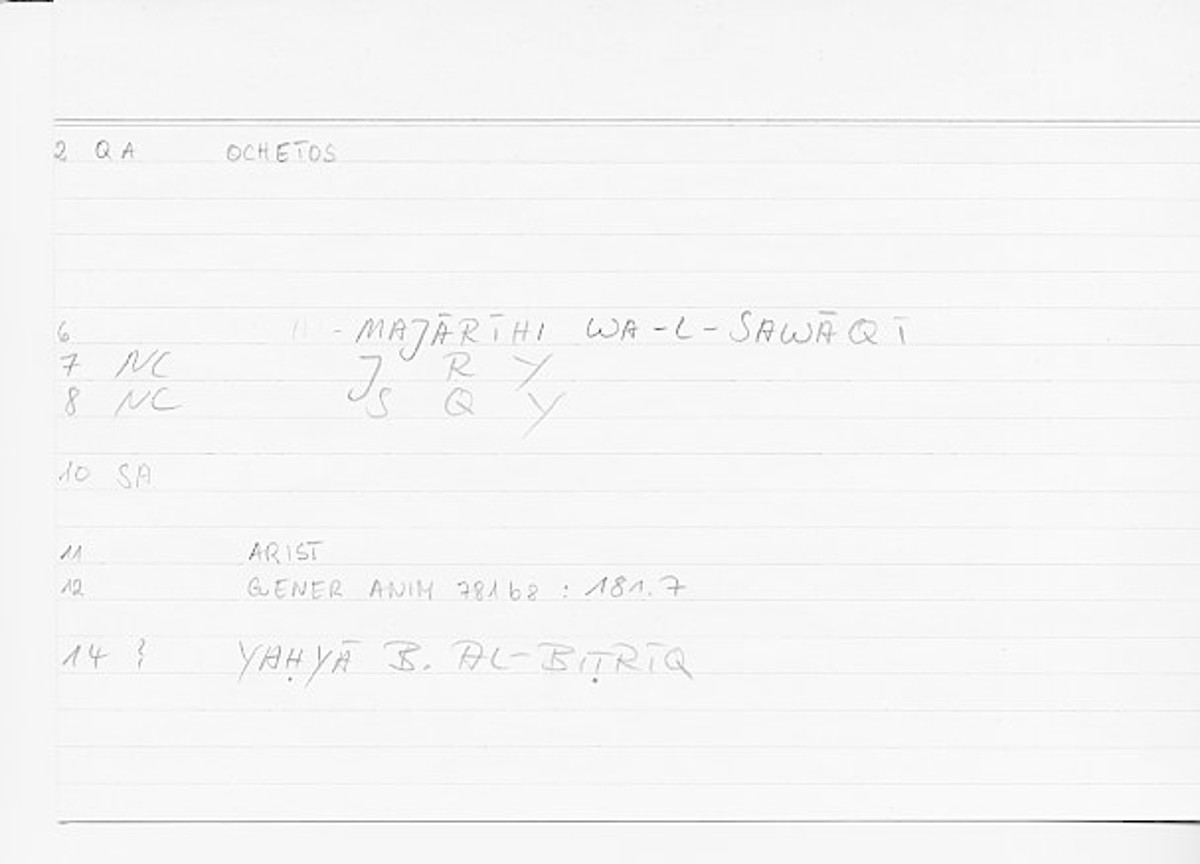 2 QA OCHETOS
6 - MAJĀRĪHI WA-L-SAWĀQĪ
7 NC J R Y
8 NC S Q Y
10 SA
11 ARIST
12 GENER ANIM 781b8 : 181.7
14 ? YAḤYĀ B. AL-BIṬRĪQ